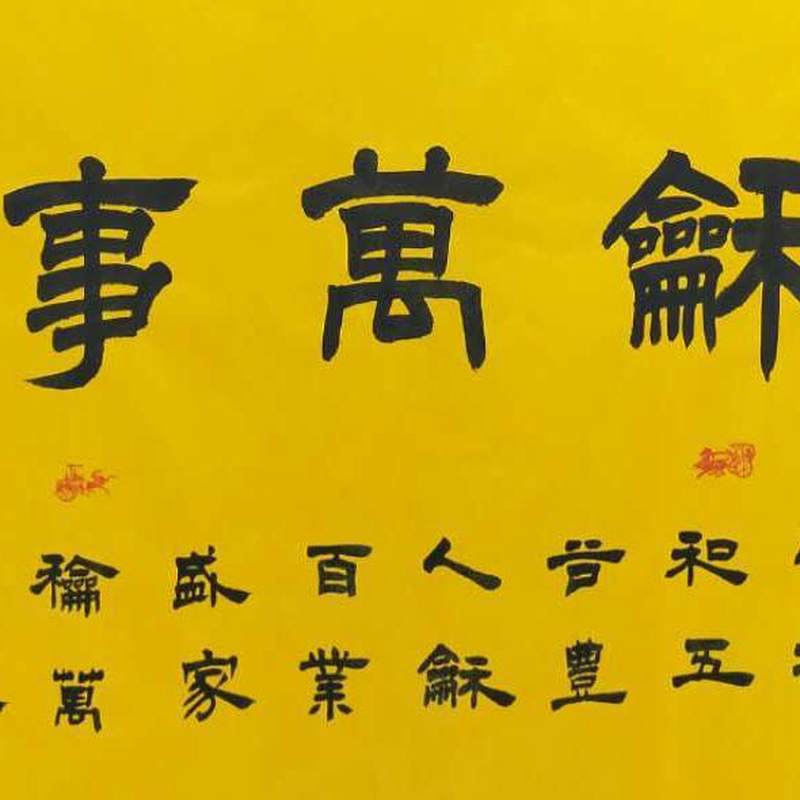 龢萬事
和五
谷豐
人龢
百業
盛家
龢萬